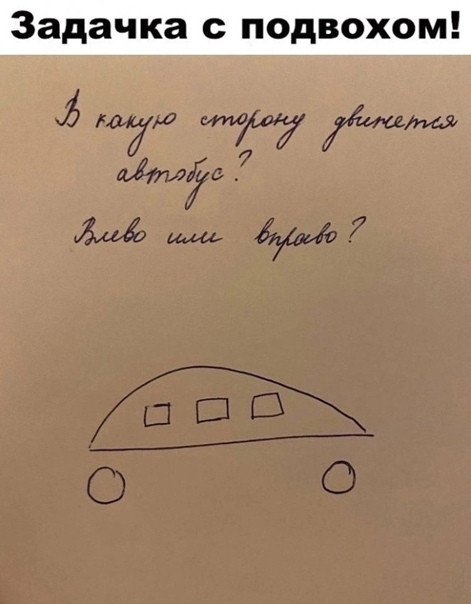 Задачка с подвохом!
В какую сторону движется
автобус?
Влево или вправо?